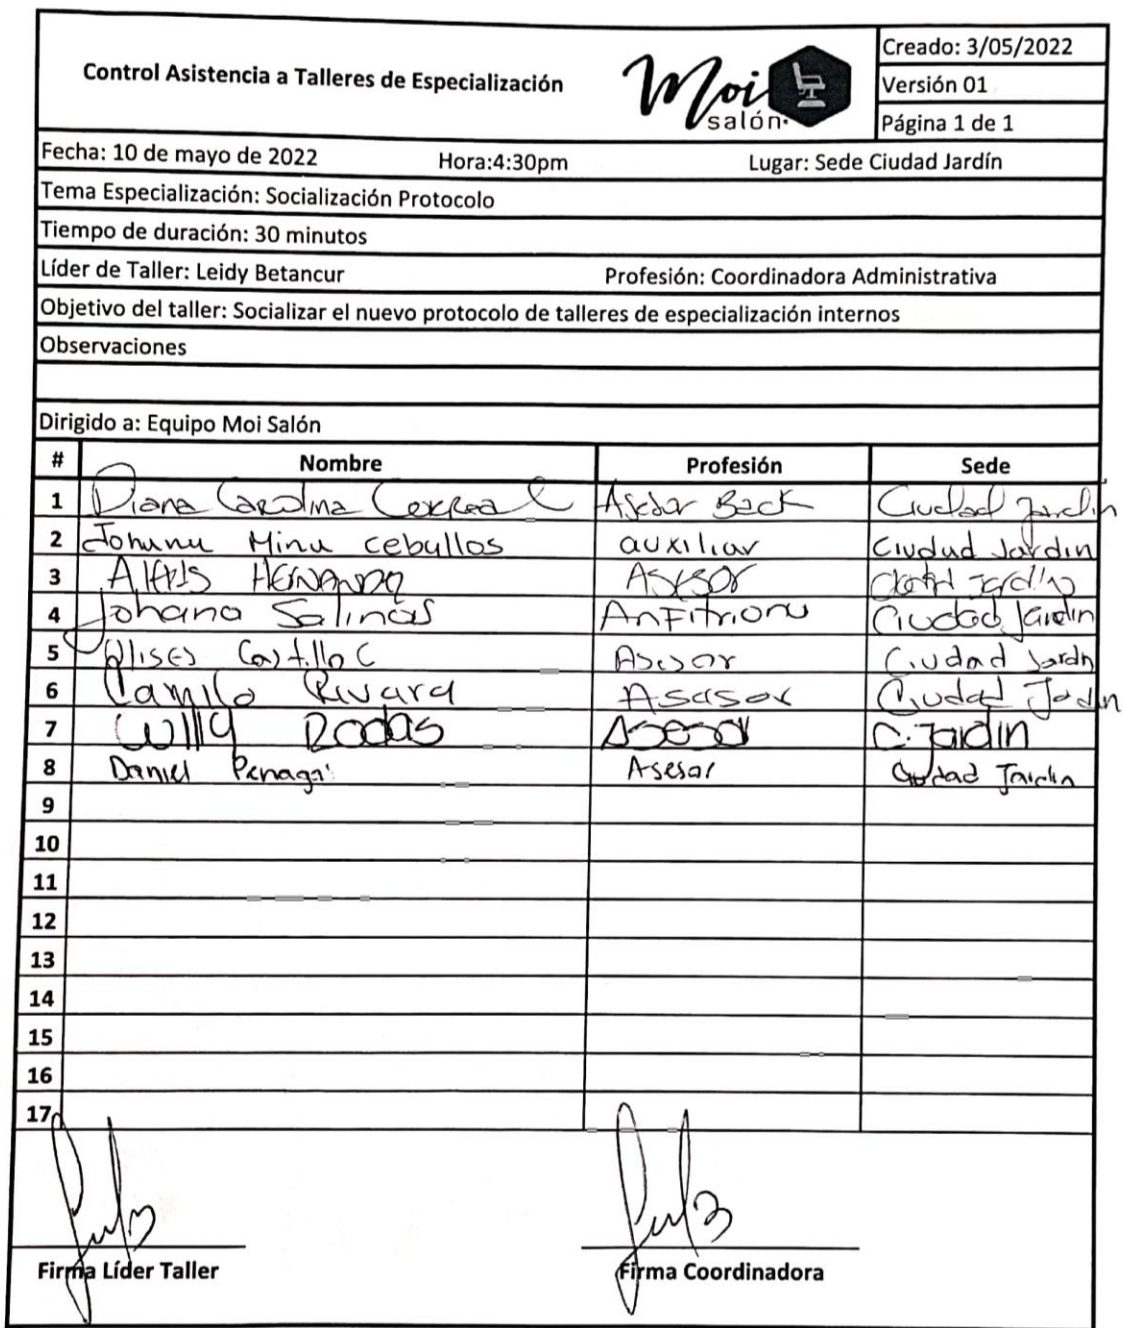 Control Asistencia a Talleres de Especialización
Moi salón
Creado: 3/05/2022
Versión 01
Página 1 de 1
Fecha: 10 de mayo de 2022 Hora:4:30pm Lugar: Sede Ciudad Jardín
Tema Especialización: Socialización Protocolo
Tiempo de duración: 30 minutos
Líder de Taller: Leidy Betancur Profesión: Coordinadora Administrativa
Objetivo del taller: Socializar el nuevo protocolo de talleres de especialización internos
Observaciones
Dirigido a: Equipo Moi Salón
# Nombre Profesión Sede
1 Diana Carolina Correa Asesor Back Ciudad Jardin
2 Johana Mina ceballos auxiliar Ciudad Jardin
3 Alexis Asesor Ciudad Jardin
4 Johana Salinas Anfitriona Ciudad Jardin
5 Ulises Castillo C Asesor Ciudad Jardin
6 Camilo Rivara Asasor Ciudad Jadin
7 Willy Rodas Asesor C. Jardin
8 Daniel Asesor Ciudad Jardin
9
10
11
12
13
14
15
16
17
Firma Líder Taller Firma Coordinadora